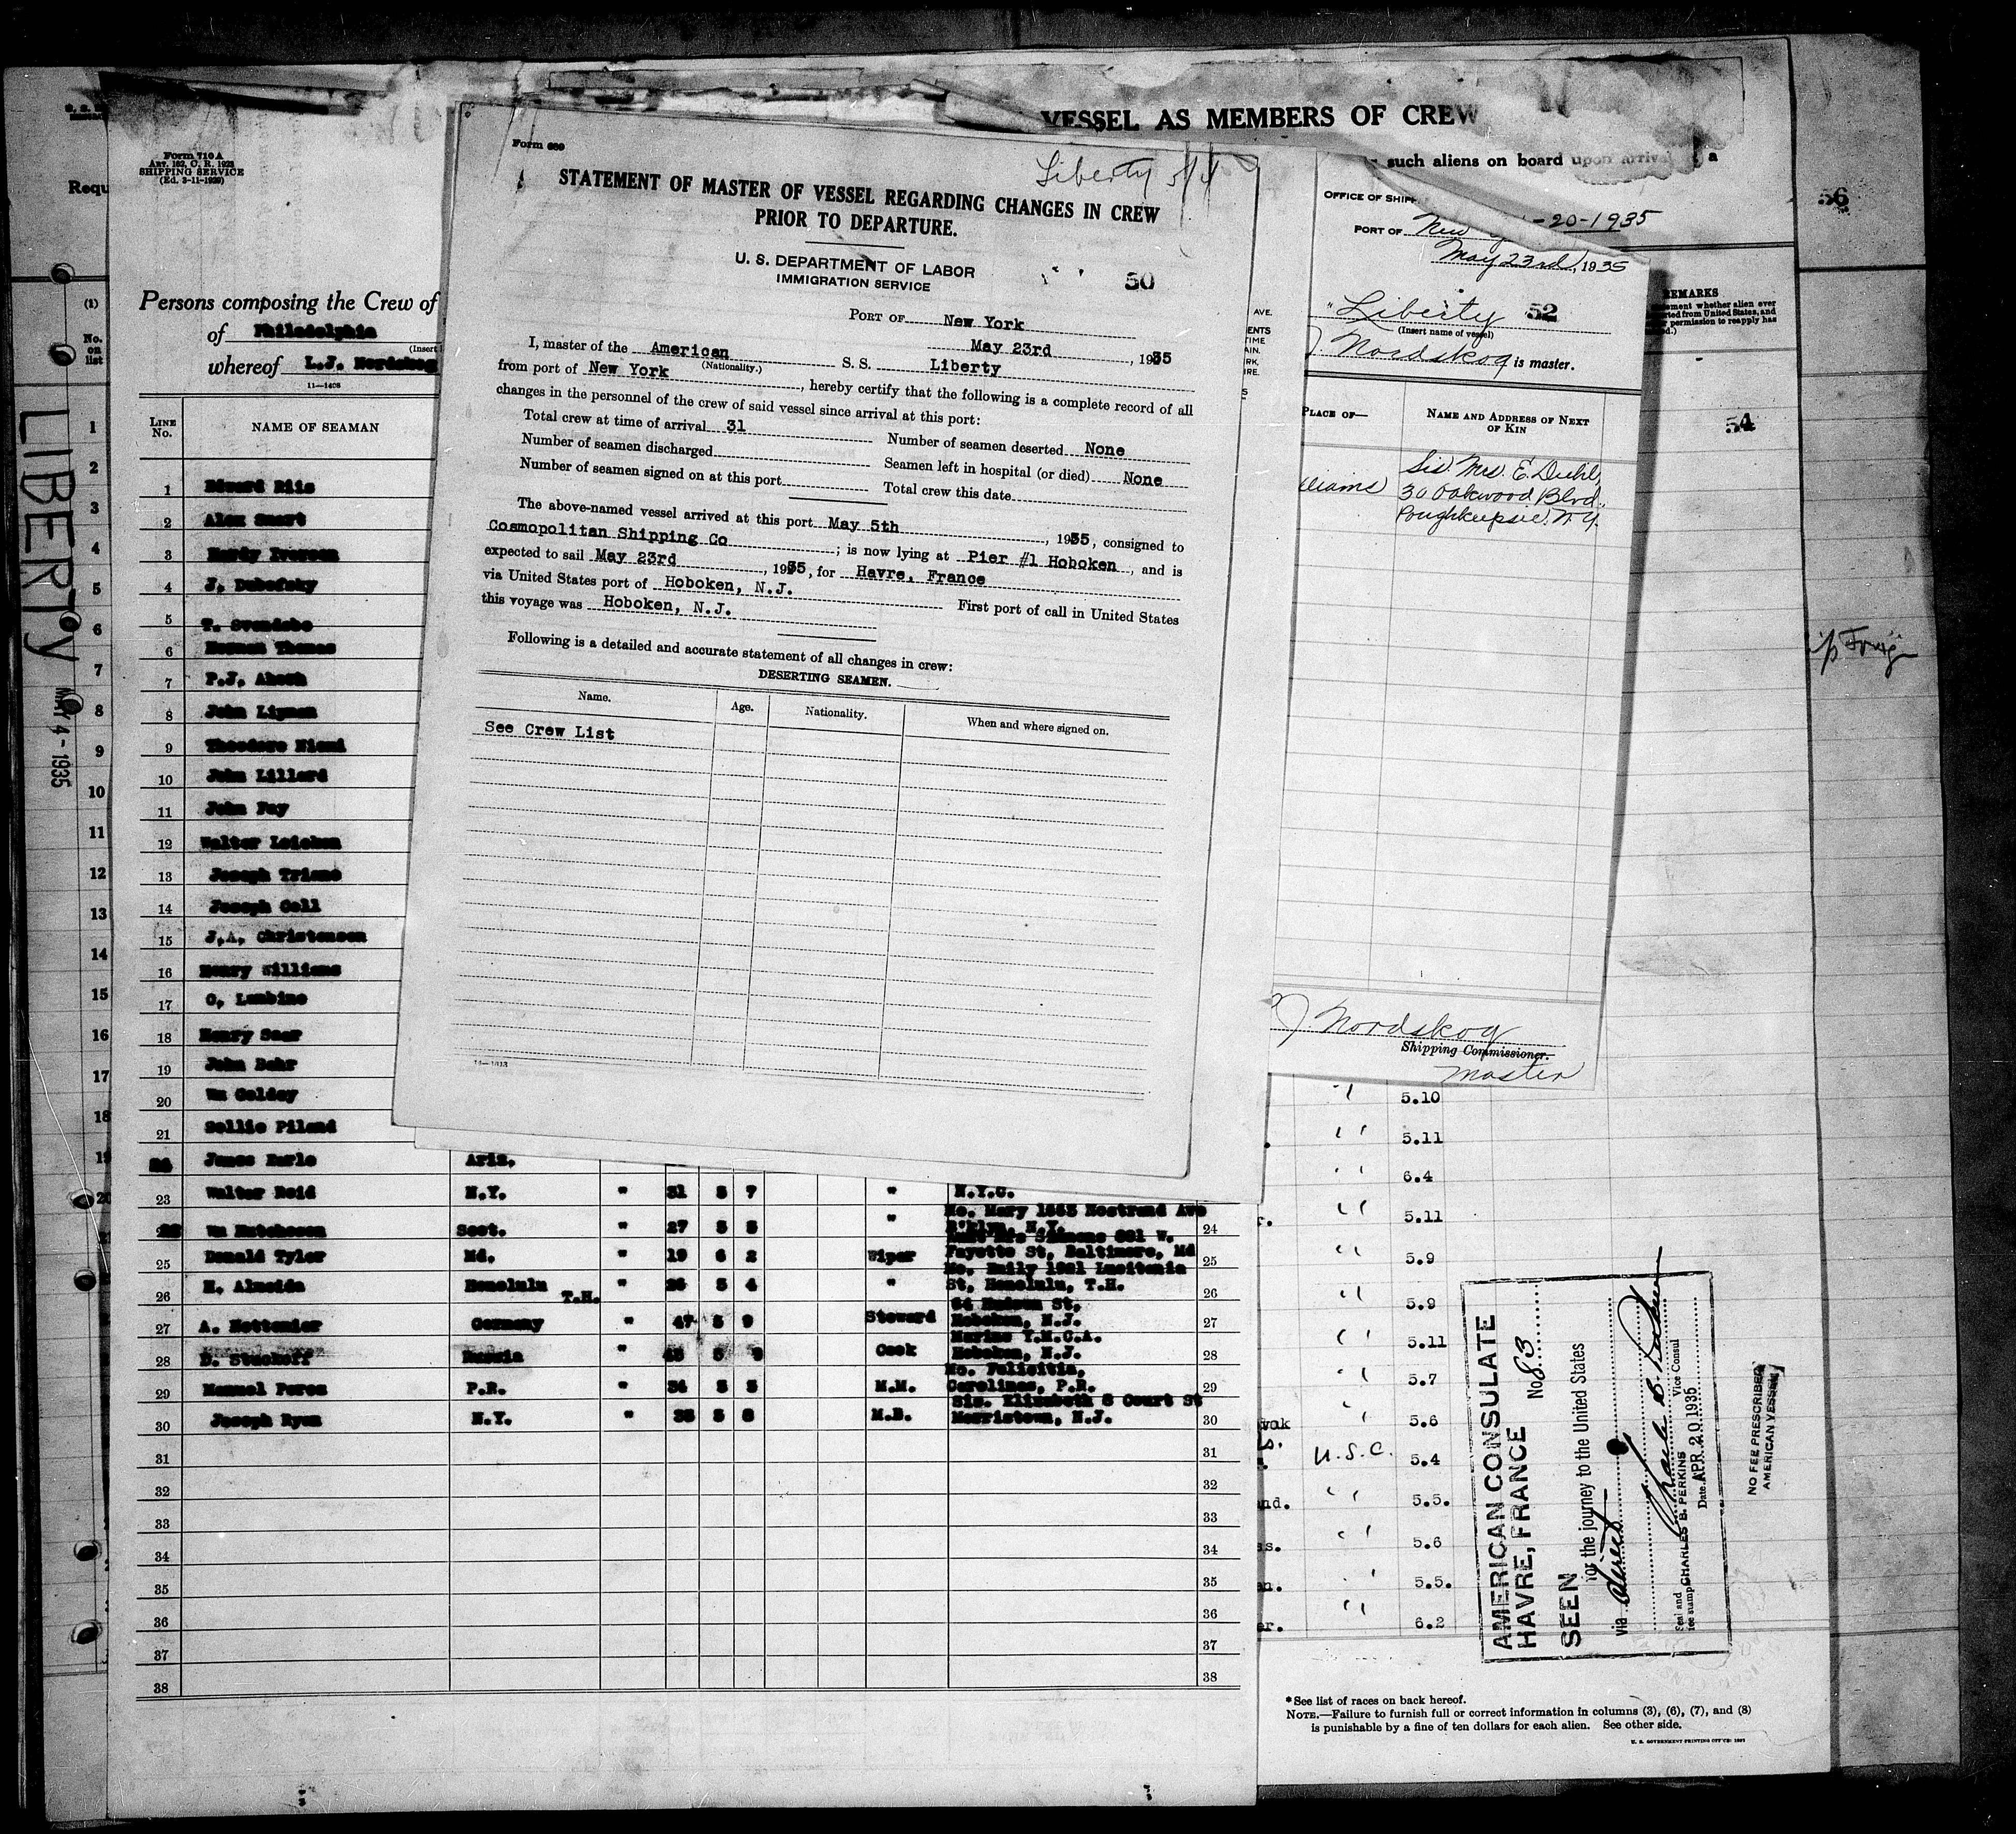 LIBERTY
MAY 4 - 1935
Requ
(1)
No. on list
Form 710A
ART. 162, C. R. 1923
SHIPPING SERVICE
(Ed. 3-11-1929)
Persons composing the Crew of
of Philadelphia
(Insert
whereof L.J. Nordskog
11—1408
LINE No. NAME OF SEAMAN
1 Edward Riis
2 Alex Smart
3 Hardy Iverson
4 J. Dubofsky
5 T. Svendsbo
6 Herman Thomas
7 P.J. Ahoth
8 John Liyman
9 Theodore Niemi
10 John Lillard
11 John Fay
12 Walter Leichen
13 Joseph Triano
14 Joseph Coll
15 J.A. Christensen
16 Henry Williams
17 O. Lambino
18 Henry Saar
19 John Behr
20 Wm Goldey
21 Sollie Piland
James Earle Ariz.
23 Walter Reid N.Y. " 31 5 7 " N.Y.C.
Wm Hutcheson Scot. " 27 5 8 " Mo. Mary 1553 Nostrand Ave
B'klyn, N.Y. 24
25 Donald Tyler Md. " 19 6 2 Wiper Fayette St, Baltimore, Md 25
26 H. Almeida Honolulu T.H. " 26 5 4 " Mo. Emily 1821 Lusitania
St, Honolulu, T.H. 26
27 A. Nottemier Germany " 47 5 9 Steward 64 Hudson St,
Hoboken, N.J. 27
28 D. Stuckoff Russia " 45 5 9 Cook Marine Y.M.C.A.
Hoboken, N.J. 28
29 Manuel Perez P.R. " 34 5 5 M.M. Mo. Felicitia,
Carolinas, P.R. 29
30 Joseph Ryan N.Y. " 38 5 8 M.B. Sis. Elizabeth 8 Court St
Morristown, N.J. 30
31 31
32 32
33 33
34 34
35 35
36 36
37 37
38 38
Form 689
Liberty 5/4
STATEMENT OF MASTER OF VESSEL REGARDING CHANGES IN CREW
PRIOR TO DEPARTURE.
U. S. DEPARTMENT OF LABOR
IMMIGRATION SERVICE
50
PORT OF New York
May 23rd, 1935
I, master of the American S. S. Liberty
(Nationality.)
from port of New York, hereby certify that the following is a complete record of all
changes in the personnel of the crew of said vessel since arrival at this port:
Total crew at time of arrival 31
Number of seamen discharged Number of seamen deserted None
Number of seamen signed on at this port Seamen left in hospital (or died) None
Total crew this date
The above-named vessel arrived at this port May 5th, 1935, consigned to
Cosmopolitan Shipping Co; is now lying at Pier #1 Hoboken, and is
expected to sail May 23rd, 1935, for Havre, France
via United States port of Hoboken, N.J. First port of call in United States
this voyage was Hoboken, N.J.
Following is a detailed and accurate statement of all changes in crew:
DESERTING SEAMEN.
Name. Age. Nationality. When and where signed on.
See Crew List
VESSEL AS MEMBERS OF CREW
such aliens on board upon arrival a
56
OFFICE OF SHIP
-20-1935
PORT OF New
May 23rd, 1935
"Liberty 52
(Insert name of vessel)
Nordskog is master.
PLACE OF— NAME AND ADDRESS OF NEXT OF KIN
lliams Sis. Mrs. E. Diehl,
30 Oakwood Blvd.,
Poughkeepsie. N.Y.
Nordskog
Shipping Commissioner.
Master
REMARKS
54
5.10
5.11
6.4
5.11
5.9
5.9
5.11
5.7
5.6
U.S.C. 5.4
5.5.
5.6
5.5.
6.2
AMERICAN CONSULATE
HAVRE, FRANCE No 83
SEEN
for the journey to the United States
via direct
Charles B. Perkins
CHARLES B. PERKINS Vice Consul
Seal and fee stamp Date APR 20 1935
NO FEE PRESCRIBED
AMERICAN VESSEL
*See list of races on back hereof.
NOTE.—Failure to furnish full or correct information in columns (3), (6), (7), and (8)
is punishable by a fine of ten dollars for each alien. See other side.
U. S. GOVERNMENT PRINTING OFFICE: 1931